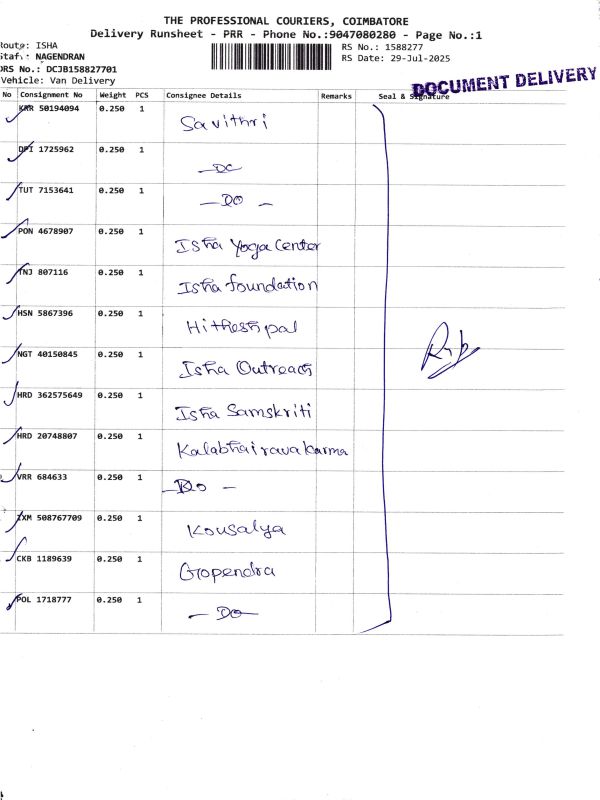 THE PROFESSIONAL COURIERS, COIMBATORE
Delivery Runsheet - PRR - Phone No.:9047080280 - Page No.:1
Route: ISHA
Staf.: NAGENDRAN
DRS No.: DCJB158827701
Vehicle: Van Delivery
RS No.: 1588277
RS Date: 29-Jul-2025
DOCUMENT DELIVERY
No Consignment No Weight PCS Consignee Details Remarks Seal & Signature
KRR 50194094 0.250 1 Savithri
DPI 1725962 0.250 1 - DO
TUT 7153641 0.250 1 - DO -
PON 4678907 0.250 1 Isha Yoga Center
TNJ 807116 0.250 1 Isha foundation
HSN 5867396 0.250 1 Hithesh pal
NGT 40150845 0.250 1 Isha Outreach
HRD 362575649 0.250 1 Isha Samskriti
HRD 20748807 0.250 1 Kalabhairava karma
VRR 684633 0.250 1 - DO -
IXM 508767709 0.250 1 Kousalya
CKB 1189639 0.250 1 Gopendra
POL 1718777 0.250 1 - DO -